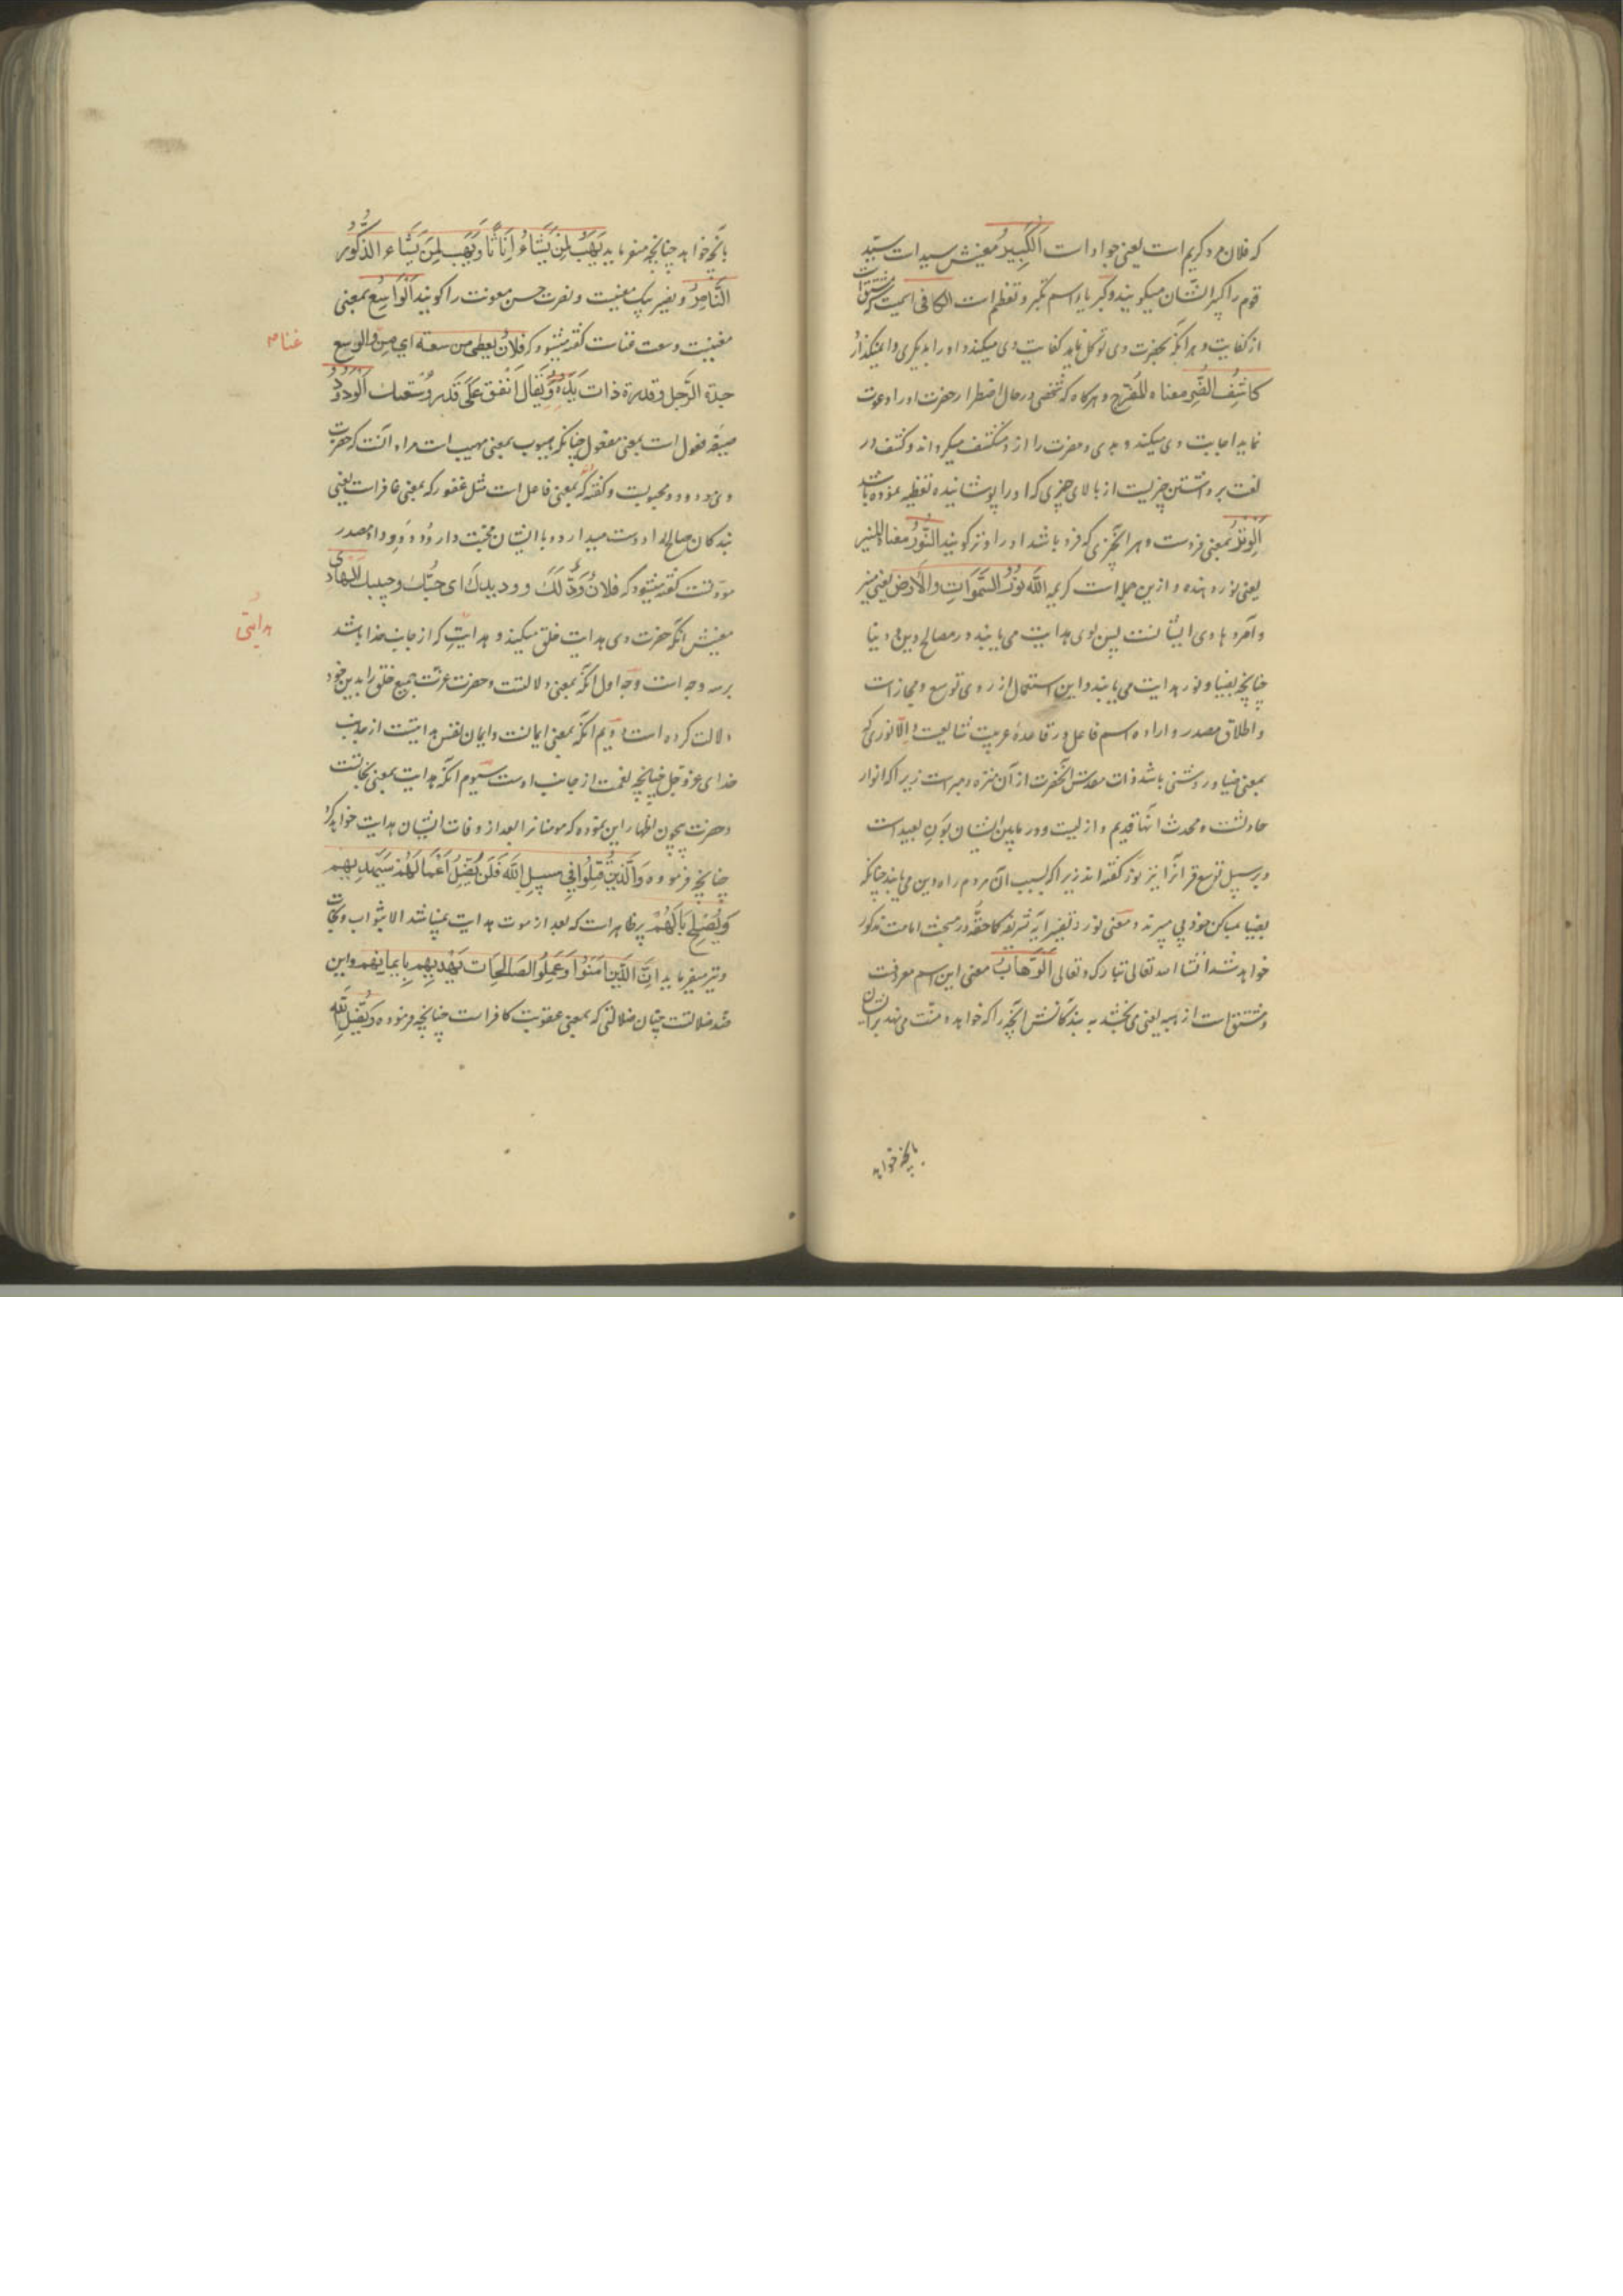 که فلان مرد کریم است یعنی جواد است اَلْکَبِیرُ معنیش سید است سیّد
قوم را کبیر ایشان میکویند و کبریا اسم تکبر و تعظم است الکافی اسمیست که مشتق است
از کفایت و هر آنکه بحضرت وی توکل نماید کفایت وی میکند و او را بدیکری وا نمیکذارد
کاشِفُ الضُّرِ معناه المُفَرِّج و هر کاه که شخصی در حال اضطرار حضرت او را دعوت
نماید اجابت وی میکند و بدی و مضرت را از و منکشف میکرداند و کشف در
لغت برداشتن چیزیست از بالای چیزی که او را پوشانیده تغطیه نموده باشد
اَلْوِتْرُ بمعنی فردست و هر آنچیزی که فرد باشد او را وتر کویند النُّورُ معناه المنیر
یعنی نور دهنده و ازین جمله است کریمه اللّه نُورُ السَّمَوَاتِ وَالْاَرْضِ یعنی منیر
و آمر و هادی ایشانست پس بوی هدایت می یابند در مصالح دین و دنیا
چنانچه بضیا و نور هدایت می یابند و این استعمال از روی توسع و مجازست
و اطلاق مصدر و اراده اسم فاعل در قاعدهٔ عربیت شایعست و اِلّا نوری که
بمعنی ضیا و روشنی باشد ذات مقدس آنحضرت از آن منزه و مبراست زیرا که انوار
حادثست و محدث آنها قدیم و ازلیست و در مابین ایشان بَوَنِ بعید است
و بر سبیل توسع قرآنرا نیز نور کفته اند زیرا که بسبب آن مردم راه دین می یابند چنانکه
بضیا بمساکن خود پی میبرند و معنی نور در تفسیر آیه شریفه کما حقّه در مبحث امامت مذکور
خواهد شد انشا الله تعالی تبارک و تعالی اَلْوَهَّابُ معنی این اسم معروفست
و مشتق است از هبه یعنی می بخشد به بندکانش آنچه را که خواهد و منّت می نهد بر ایشان
بآنچه خواهد
بآنچه خواهد چنانچه میفرماید یَهَبُ لِمَنْ یَشَاءُ اِنَاثًا وَیَهَبُ لِمَن یَشَاء الذُّکُور
النَّاصِرُ و نصیر بیک معنیست و نصرت حسن معونت را کویند اَلْوَاسِعُ بمعنی
مغنیست و سعت غناست کفته میشود که فلان یعطی من سعة ای من والوسع
غناء م
جدة الرَّجل و قدرة ذات یَدِه وَیُقَال اَنْفِق عَلَی قَدر وُسْعِک اَلْوَدُودُ
صیغه فعول است بمعنی مفعول چنانکه هیوب بمعنی مهیب است مراد آنست که حضرت
وی مودود و محبوبست و کفته اند که بمعنی فاعل است مثل غفور که بمعنی غافر است یعنی
بندکان صالح را دوست میدارد و با ایشان محبت دارد وُدّ و وَدّ و وداد مصدر
مودتست کفته میشود که فلان وُدُّ لَکَ و ودیدک ای حبُّک و حبیبک اَلْهَادی
معنیش آنکه حضرت وی هدایت خلق میکند و هدایتِ که از جانب خدا باشد
هدایتی
بر سه وجه است وجه اول آنکه بمعنی دلالتست و حضرت عزت جمیع خلق را بدین خود
دلالت کرده است دویم آنکه بمعنی ایمانست و ایمان نفس هدایتست از جانب
خدای عز و جل چنانچه نعمت از جانب اوست سیوم آنکه هدایت بمعنی نجاتست
و حضرت بیچون اظهار این نموده که مومنانرا بعد از وفات ایشان هدایت خواهد کرد
چنانچه فرموده وَالَّذینَ قُتِلُوا فِی سَبِیلِ اللّه فَلَن یُضِلَّ اَعْمَالَهُمْ سَیَهْدِیهِم
وَیُصْلِح بَالَهُمْ پر ظاهر است که بعد از موت هدایت نمیباشد الا بثواب و نجات
و نیز میفرماید اِنَّ الَّذِینَ آمَنُوا وَعَمِلُوا الصَّالِحَات یَهْدِیهِم بِاِیمَانِهِم و این
ضد ضلالتست چنان ضلالتی که بمعنی عقوبت کافر است چنانچه فرموده وَیُضِلُّ اللّه